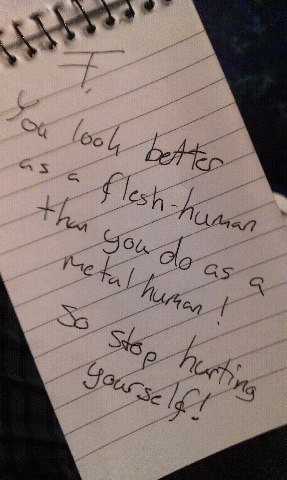 F.
You look better
as a flesh-human
than you do as a
metal human!
So stop hurting
yourself!